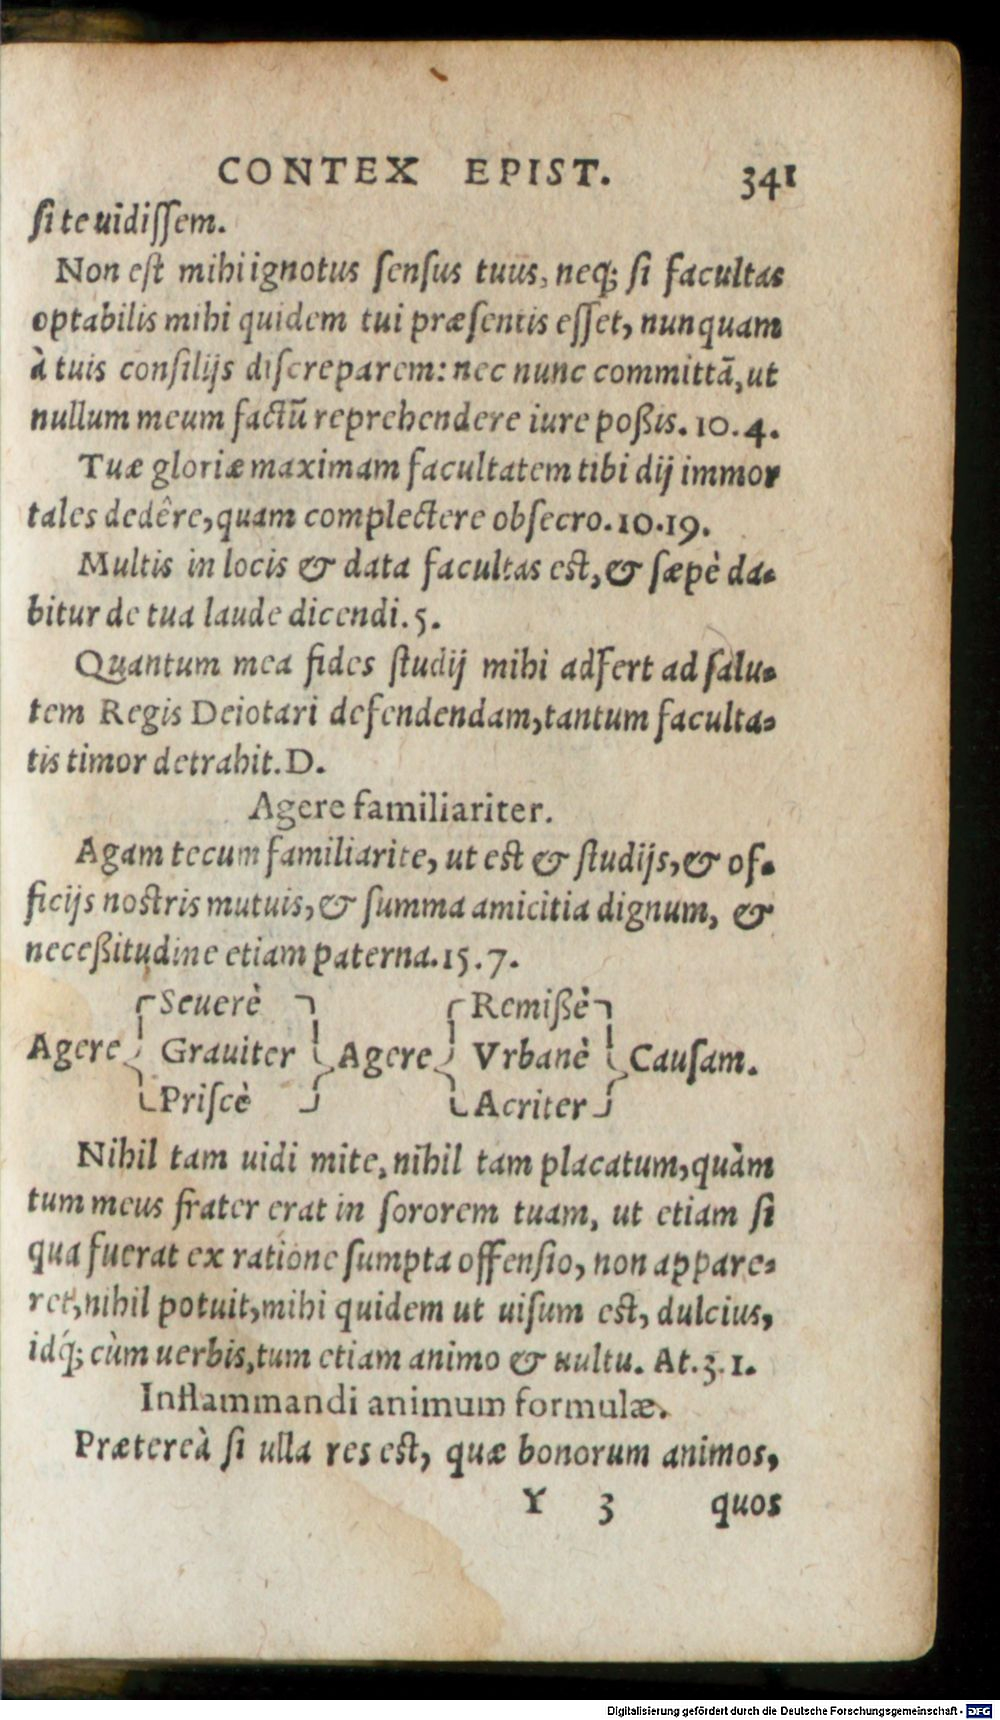 CONTEX EPIST. 341
si te uidissem.
Non est mihi ignotus sensus tuus, neq; si facultas
optabilis mihi quidem tui præsentis esset, nunquam
à tuis consilijs discreparem: nec nunc committā, ut
nullum meum factū reprehendere iure poßis. 10.4.
Tuæ gloriæ maximam facultatem tibi dij immor
tales dedêre, quam complectere obsecro. 10.19.
Multis in locis & data facultas est, & sæpè da-
bitur de tua laude dicendi. 5.
Quantum mea fides studij mihi adfert ad salu-
tem Regis Deiotari defendendam, tantum faculta-
tis timor detrahit. D.
Agere familiariter.
Agam tecum familiarite, ut est & studijs, & of-
ficijs nostris mutuis, & summa amicitia dignum, &
neceßitudine etiam paterna. 15.7.
Seuerè Remißè
Agere Grauiter Agere Vrbanè Causam.
Priscè Acriter
Nihil tam uidi mite, nihil tam placatum, quàm
tum meus frater erat in sororem tuam, ut etiam si
qua fuerat ex ratione sumpta offensio, non appare-
ret, nihil potuit, mihi quidem ut uisum est, dulcius,
idq́; cùm uerbis, tum etiam animo & uultu. At. 3.1.
Inflammandi animum formulæ.
Prætereà si ulla res est, quæ bonorum animos,
Y 3 quos
Digitalisierung gefördert durch die Deutsche Forschungsgemeinschaft - DFG